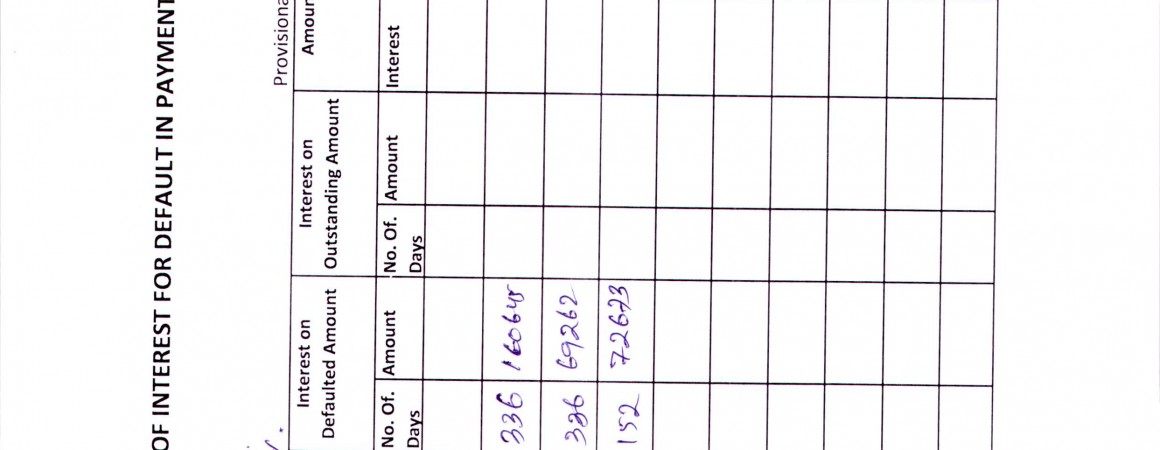 OF INTEREST FOR DEFAULT IN PAYMENT
Provisiona
Interest on Defaulted Amount
Interest on Outstanding Amount
Amoun
No. Of. Days
Amount
No. Of. Days
Amount
Interest
336
326
69262
152
72673